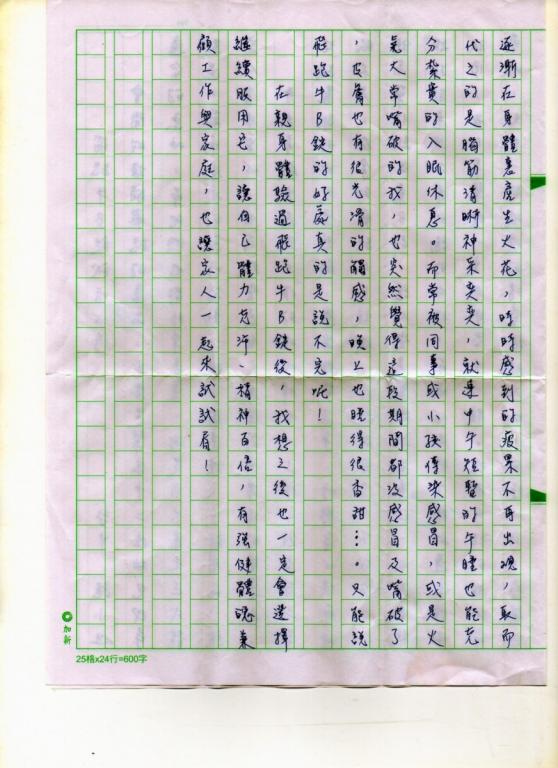 逐漸在身體裏產生火花，時時感到的疲累不再出現，取而
代之的是腦筋清晰神采奕奕，就連中午短暫的午睡也能充
分紮實的入眠休息。而常被同事或小孩傳染感冒，或是火
氣大常嘴破的我，也突然覺得這段期間都沒感冒及嘴破了
，皮膚也有很光滑的觸感，晚上也睡得很香甜…。只能說
飛跑牛B錠的好處真的是說不完呢！
在親身體驗過飛跑牛B錠後，我想之後也一定會選擇
繼續服用它，讓自己體力充沛、精神百倍，有強健體魄兼
顧工作與家庭，也讓家人一起來試試看！
加新
25格x24行=600字